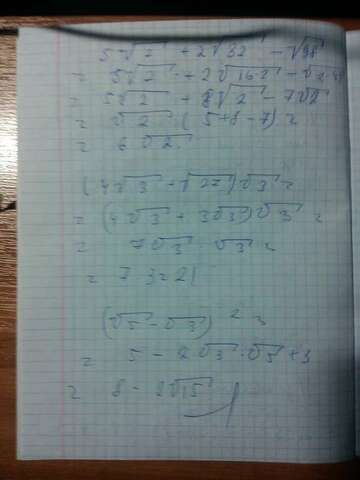 5√2 + 2√32 - √98
= 5√2 + 2√16·2 - √2·49
= 5√2 + 8√2 - 7√2
= √2 (5+8-7) =
= 6√2
(4√3 + √27)√3 =
= (4√3 + 3√3)√3 =
= 7√3 · √3 =
= 7·3=21
(√5 - √3)² =
= 5 - 2√3·√5 + 3
= 8 - 2√15